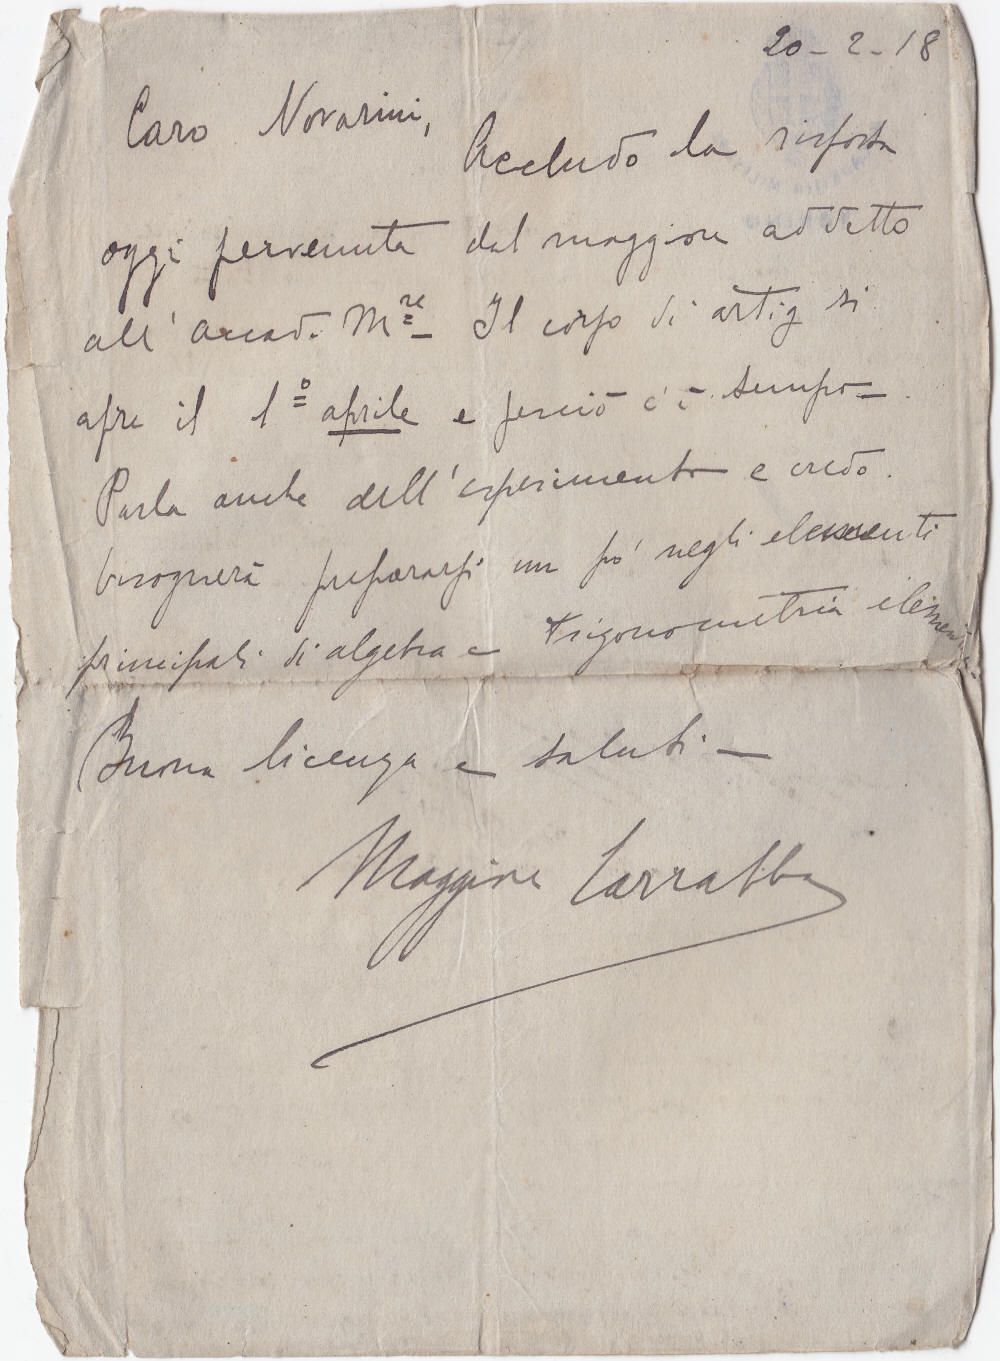 20-2-18
Caro Novarini,
Accludo la risposta
oggi pervenuta dal maggiore addetto
all'accad. Mre_ Il corso di artig si
apre il 1º aprile e perciò c'è tempo_
Parla anche dell'esperimento e credo
bisognerà prepararsi un po' negli elementi
principali di algebra e trigonometria
Buona licenza e saluti_
Maggiore